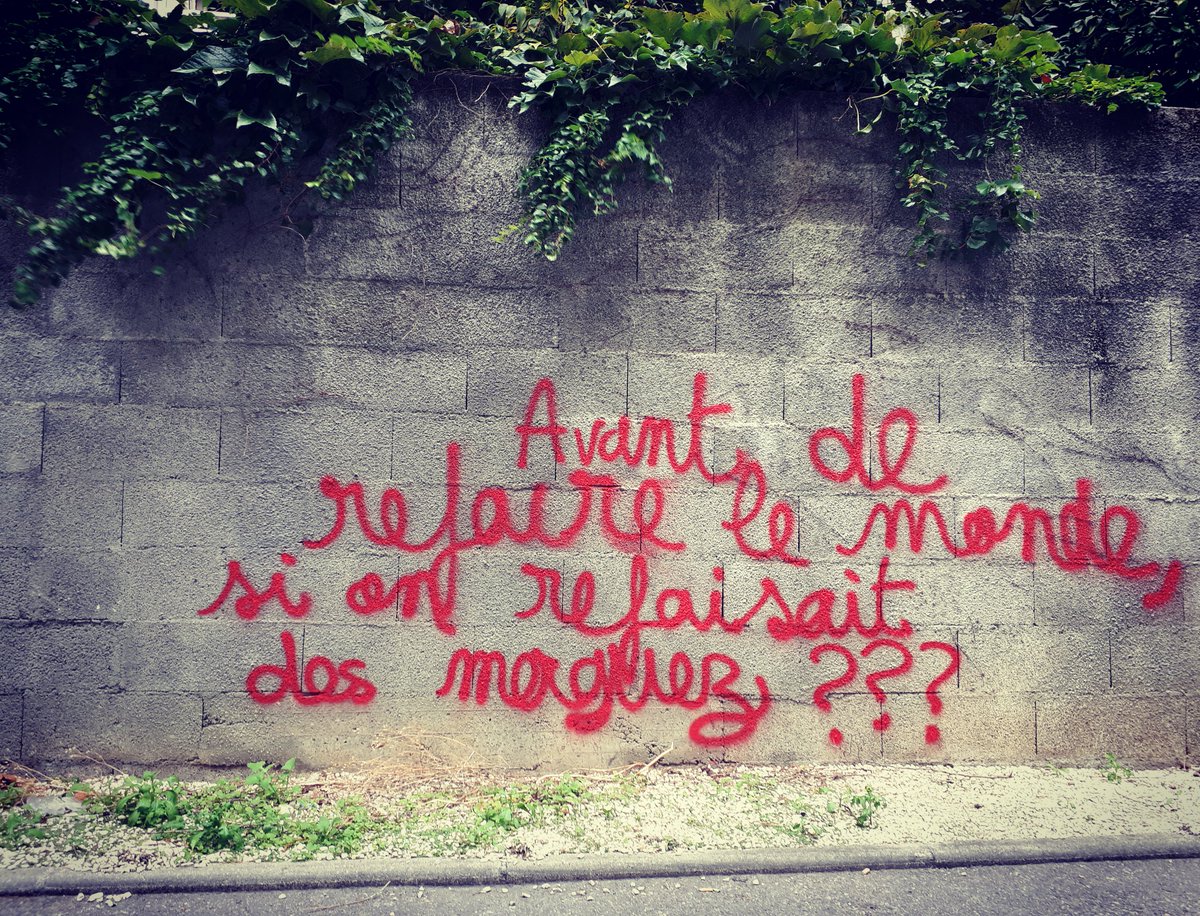 Avant de
refaire le monde,
si on refaisait
des merguez, ???